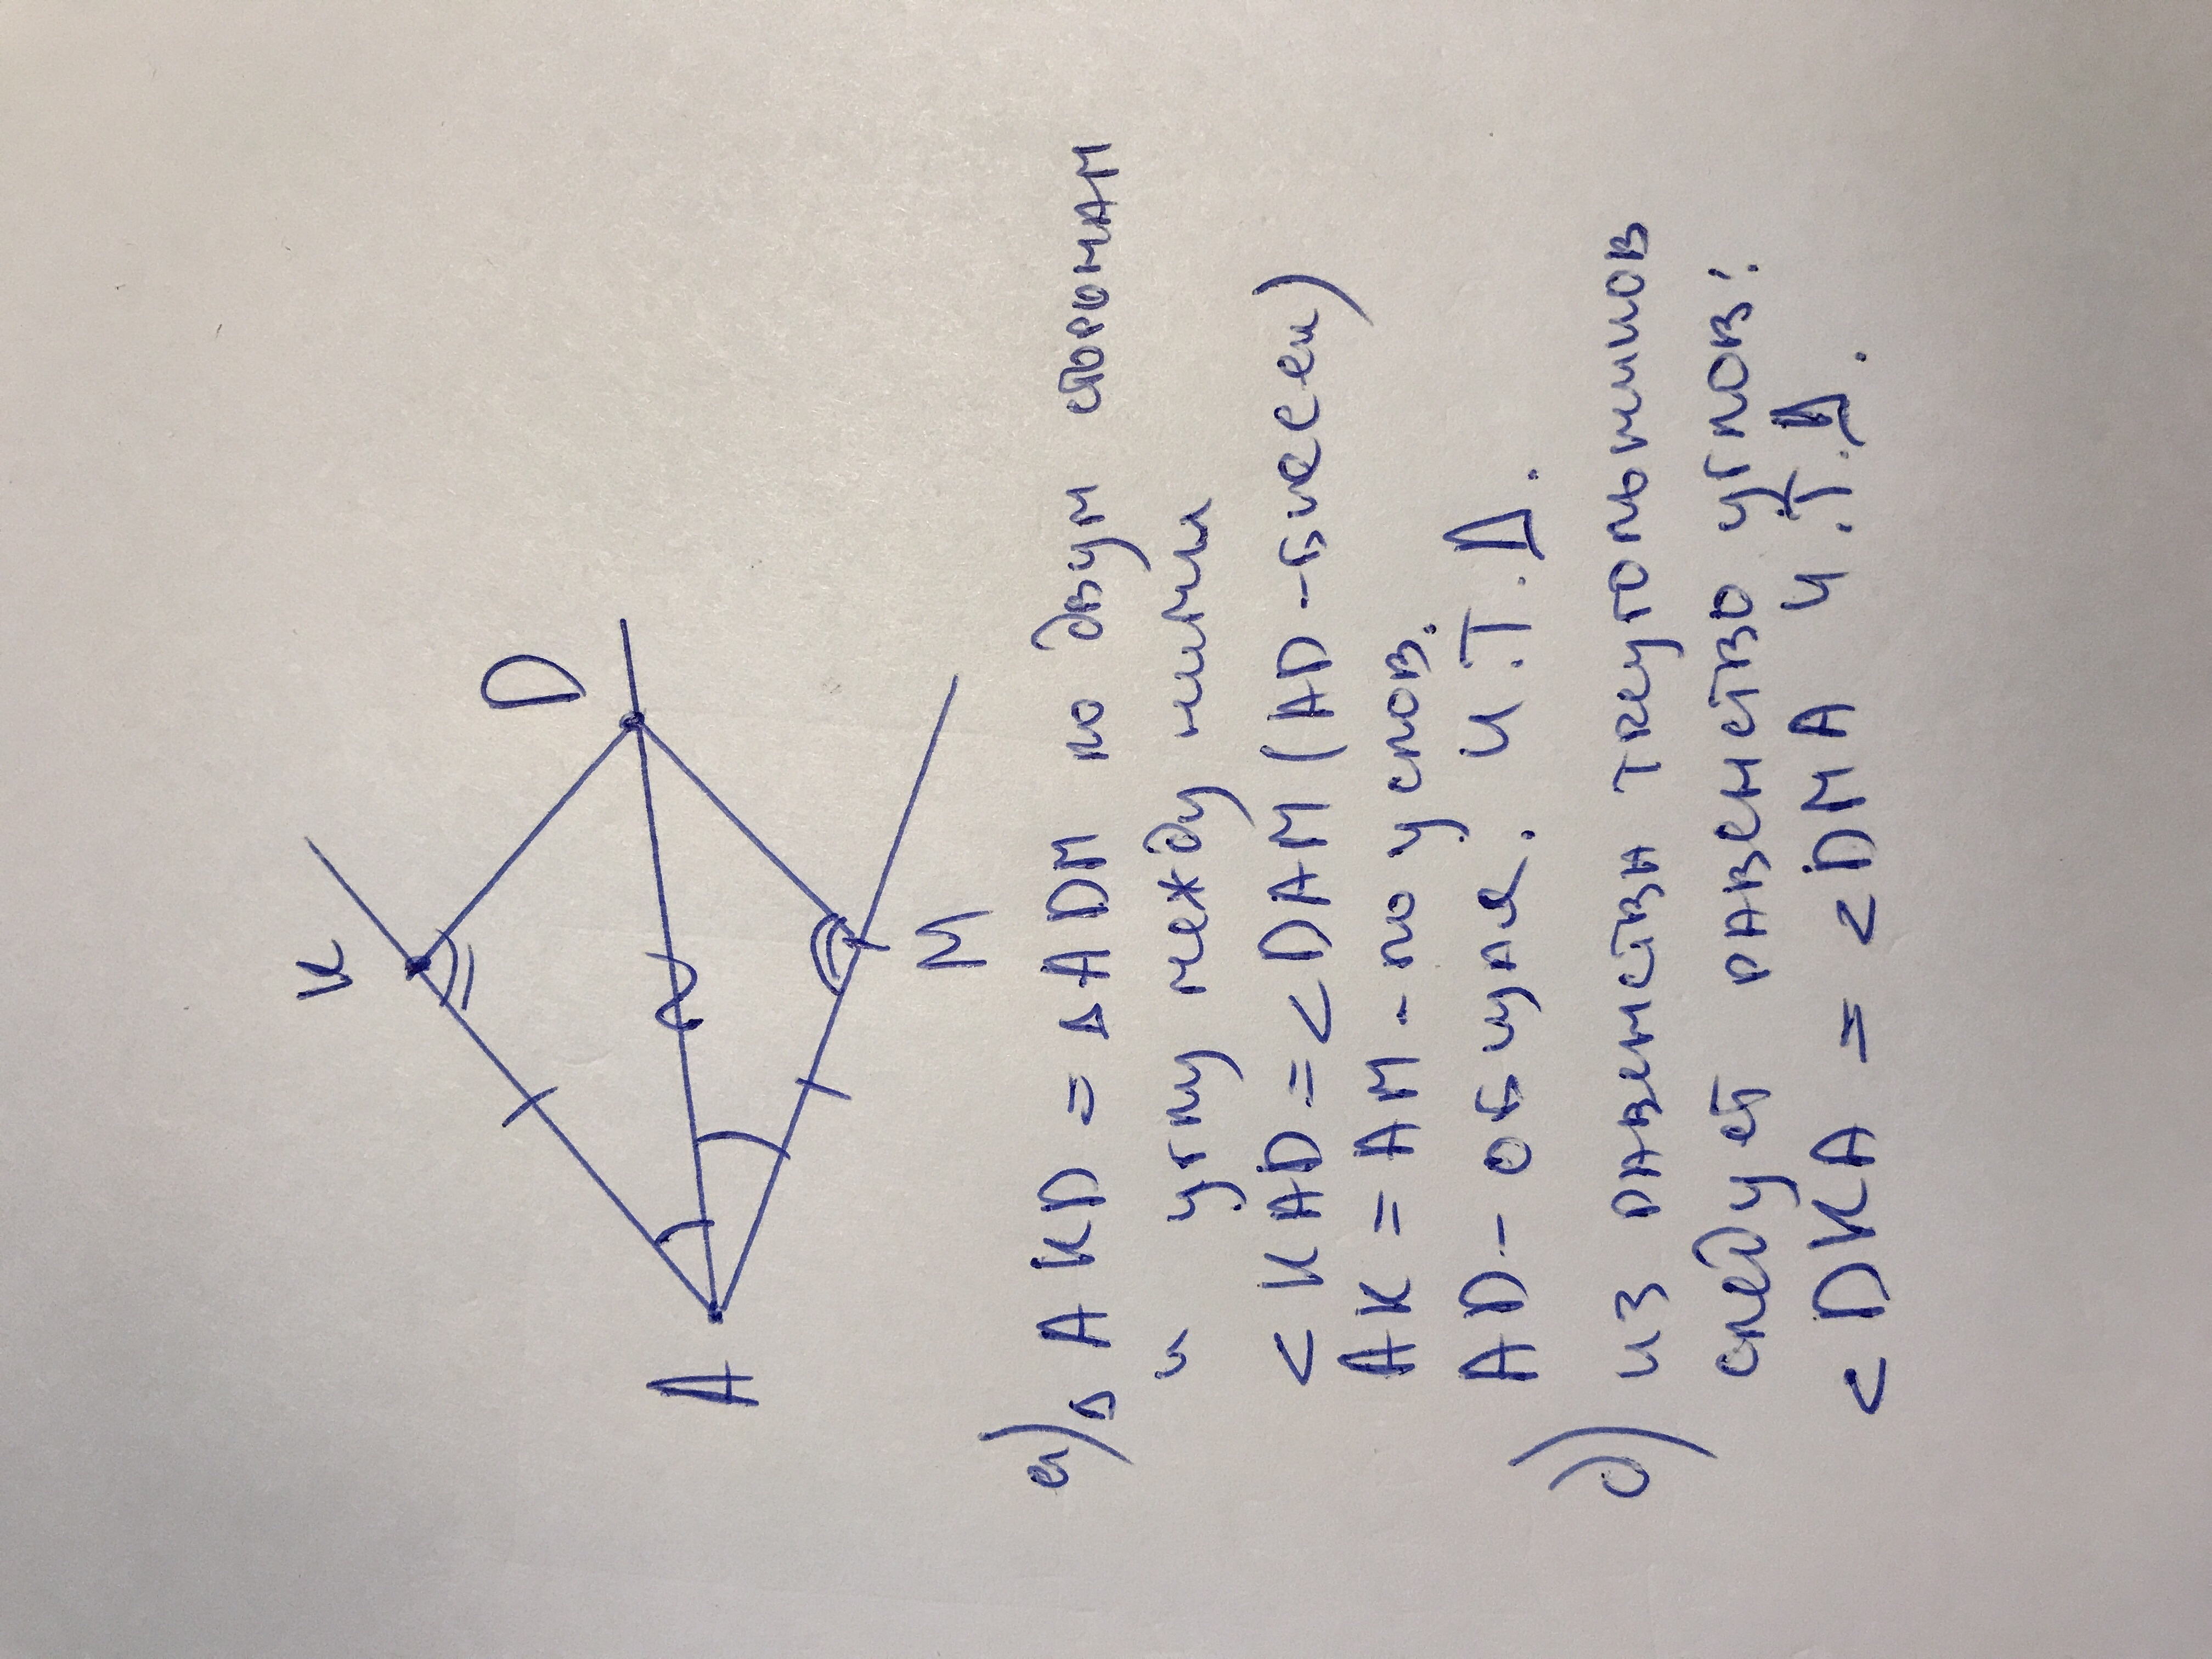 K
D
A
M
а) △AKD = △ADM по двум сторонам
и углу между ними
<KAD = <DAM (AD - биссек)
AK = AM - по услов.
AD - общая. Ч.Т.Д.
б) из равенства треугольников
следует равенство углов:
<DKA = <DMA Ч.Т.Д.